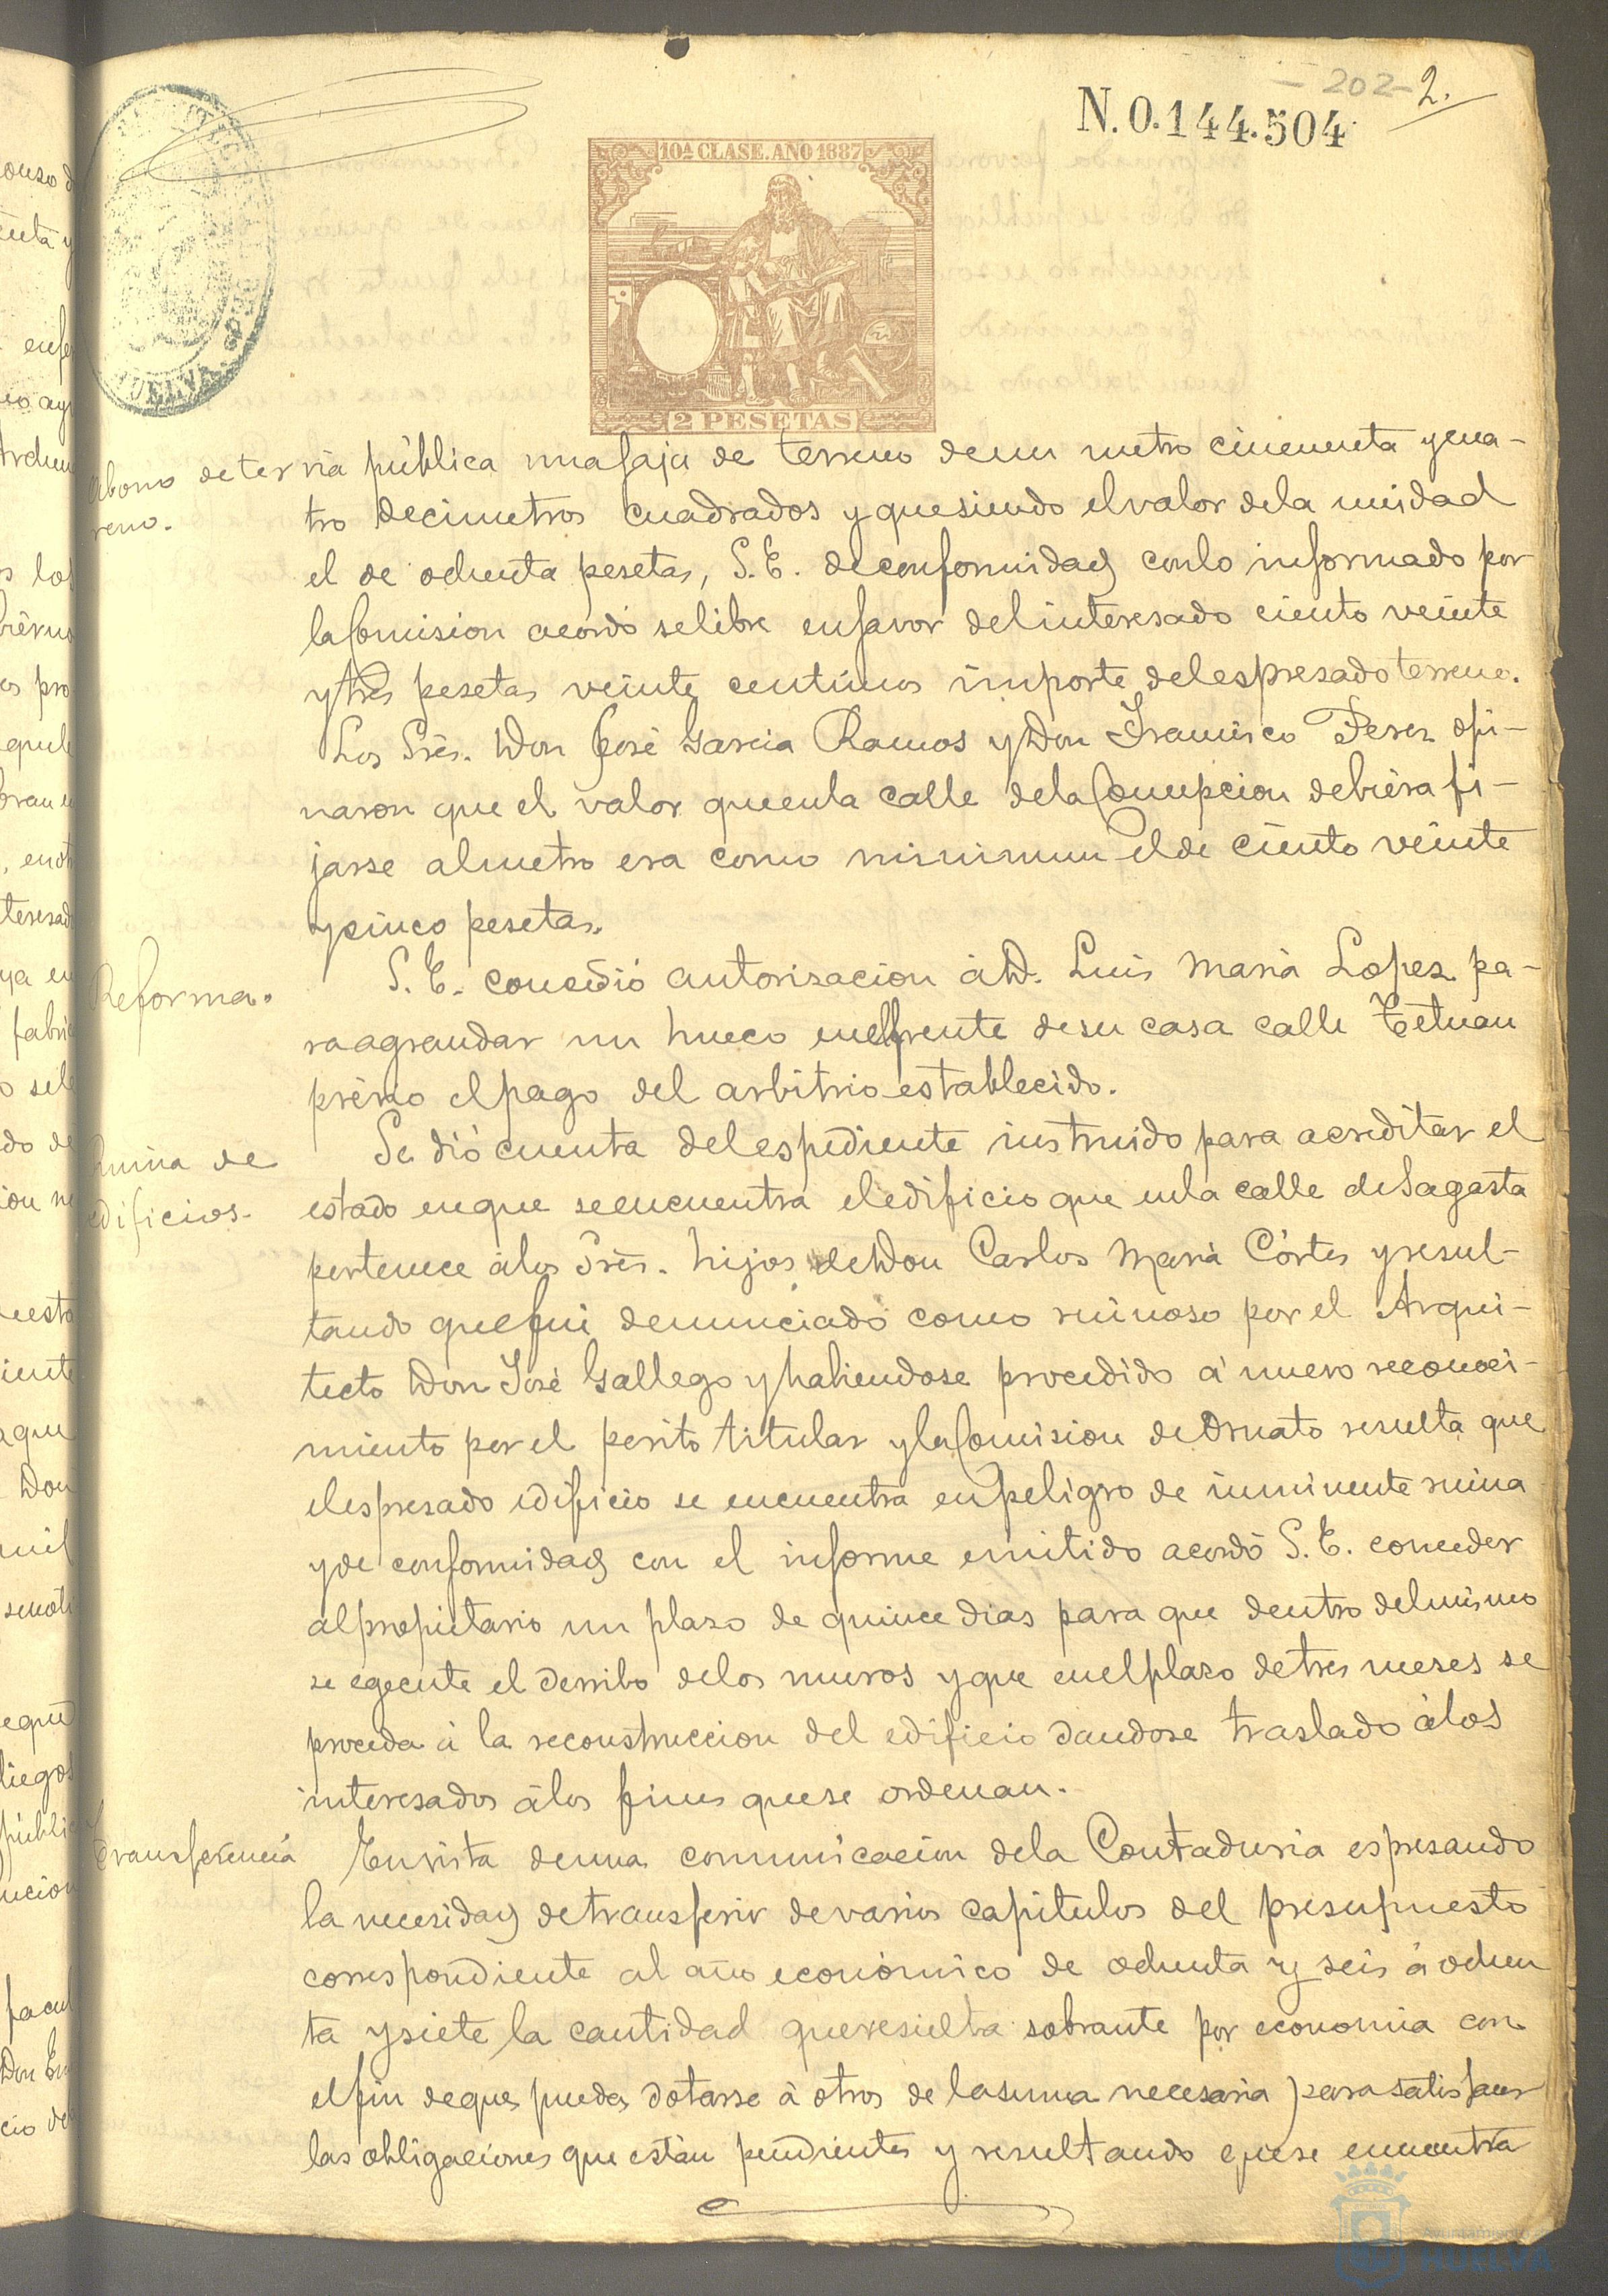 - 202 - 2.
N. 0.144.504
10ª CLASE. AÑO 1887
2 PESETAS
HUELVA
Abono de ter
reno.
via pública una faja de terreno de un metro cincuenta y cua-
tro decimetros cuadrados y que siendo el valor de la unidad
el de ochenta pesetas, S. E. de conformidad con lo informado por
la Comision acordó se libre en favor del interesado ciento veinte
y tres pesetas veinte centimos importe del espresado terreno.
Los Srēs. Don José Garcia Ramos y Don Francisco Perez opi-
naron que el valor que en la calle de la Concepcion debiera fi-
jarse al metro era como minimun el de ciento veinte
y cinco pesetas.
Reforma.
S. E. concedió autorizacion á D. Luis Maria Lopez pa-
ra agrandar un hueco en el frente de su casa calle Tetuan
prévio el pago del arbitrio establecido.
Ruina de
edificios.
Se dió cuenta del espediente instruido para acreditar el
estado en que se encuentra el edificio que en la calle de Sagasta
pertenece á los Srēs. hijos de Don Carlos Maria Córtes y resul-
tando que fué denunciado como ruinoso por el Arqui-
tecto Don José Gallego y habiendose procedido á nuevo reconoci-
miento por el perito titular y la Comision de Ornato resulta que
el espresado edificio se encuentra en peligro de inminente ruina
y de conformidad con el informe emitido acordó S. E. conceder
al propietario un plazo de quince dias para que dentro del mismo
se egecute el derribo de los muros y que en el plazo de tres meses se
proceda á la reconstruccion del edificio dandose traslado á los
interesados á los fines que se ordenan.
Transferencia
En vista de una comunicacion de la Contaduria espresando
la necesidad de transferir de varios capitulos del presupuesto
correspondiente al año económico de ochenta y seis á ochen
ta y siete la cantidad que resulta sobrante por economia con
el fin de que pueda dotarse á otros de la suma necesaria para satisfacer
las obligaciones que están pendientes y resultando que se encuentra
Ayuntamiento
HUELVA